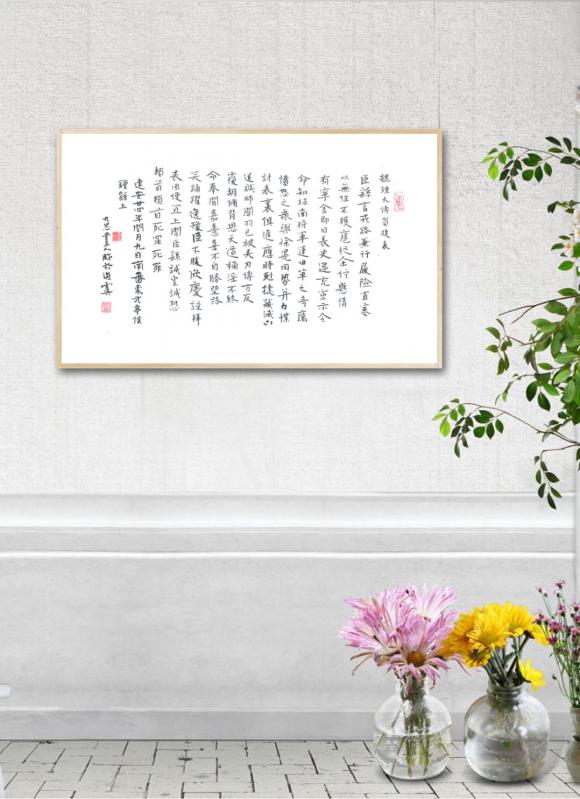 魏鍾太傅賀捷表
臣繇言戎路兼行履險冒寒
以無任不獲扈從企佇懸情
有寧舍即日長史逮充宣示令
命知征南將軍運田單之奇厲
憤怒之衆與徐晃同勢并力撲
討表裏俱進應時剋捷馘滅凶
逆賊帥關羽已被矢刃傅方反
覆胡脩背恩天道禍淫不終
命奉聞嘉憙喜不自勝望路
笑踊躍逸豫臣不勝欣慶謹拜
表因便宜上聞臣繇誠皇誠恐
頓首頓首死罪死罪
建安廿四年閏月九日南蕃東武亭侯
鍾繇上
九思堂主人臨於